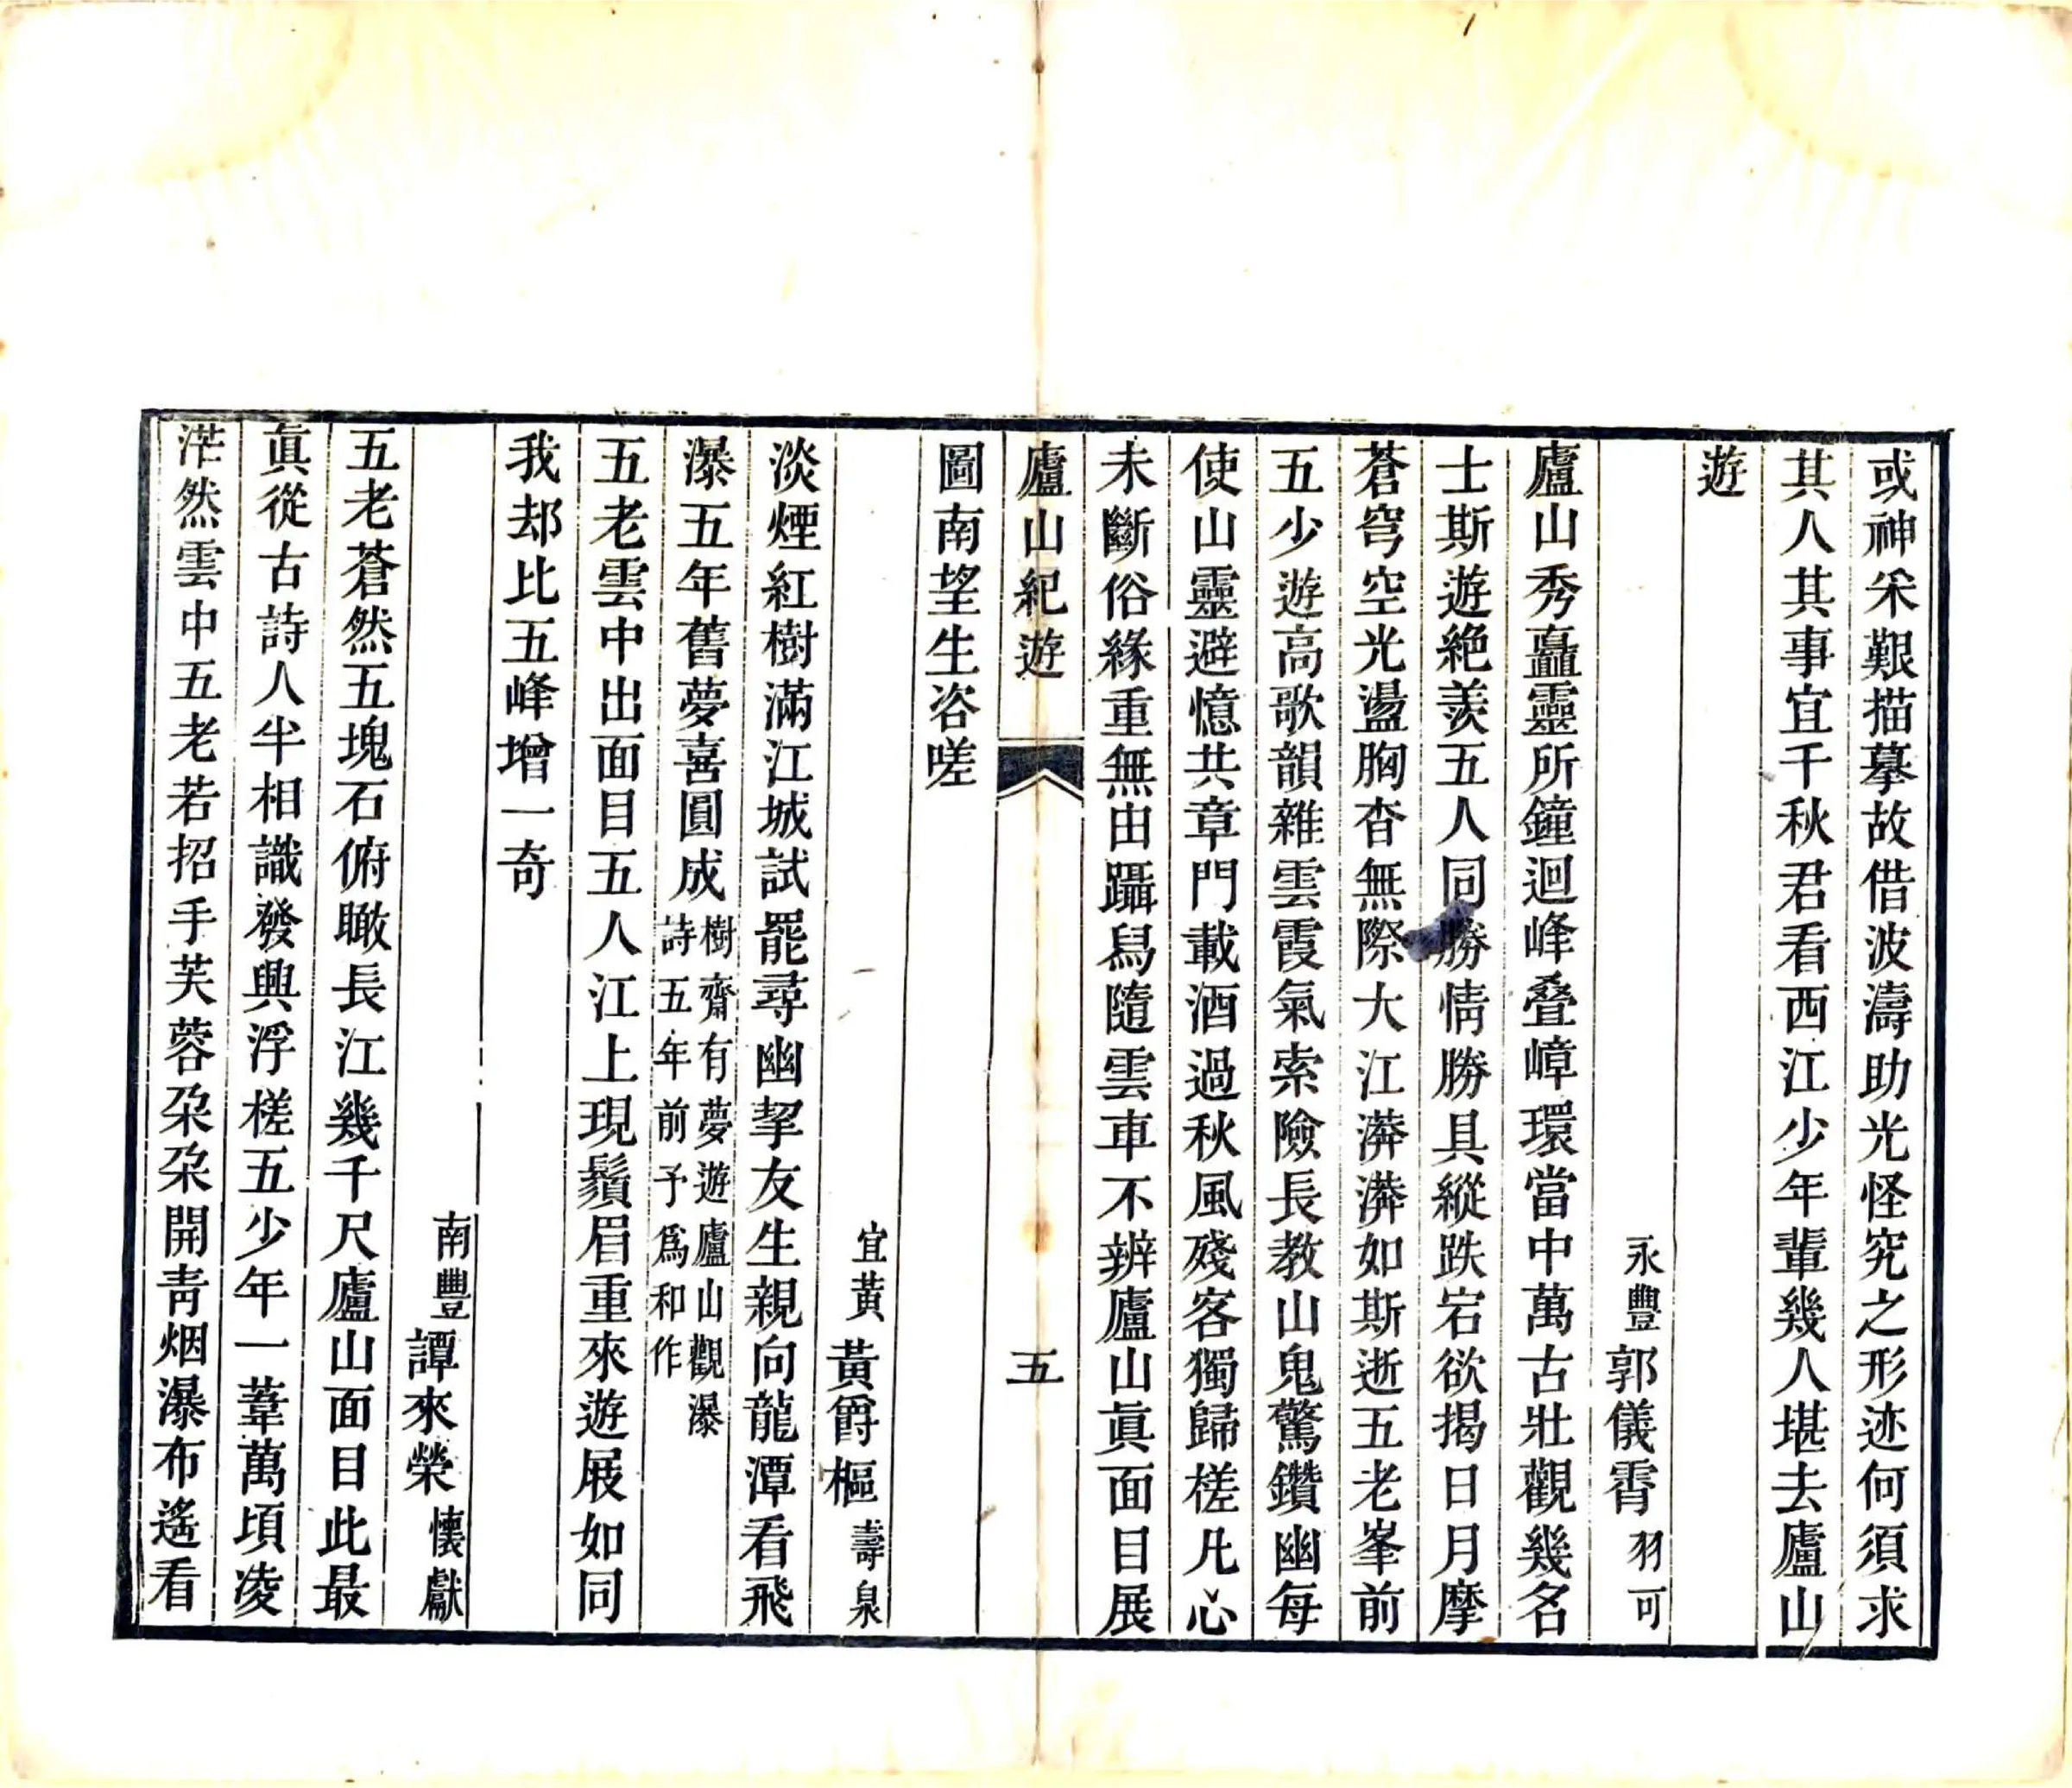 或神采艱描摹故借波濤助光怪究之形迹何須求
其人其事宜千秋君看西江少年輩幾人堪去廬山
遊
永豐郭儀霄羽可
廬山秀矗靈所鐘迴峰叠嶂環當中萬古壯觀幾名
士斯遊絶羨五人同勝情勝具縱跌宕欲揭日月摩
蒼穹空光盪胸杳無際大江漭漭如斯逝五老峯前
五少遊高歌韻雜雲霞氣索險長教山鬼驚鑽幽每
使山靈避憶共章門載酒過秋風殘客獨歸槎凡心
未斷俗緣重無由躡舄隨雲車不辨廬山眞面目展
廬山紀遊 五
圖南望生咨嗟
宜黃黃爵樞壽泉
淡煙紅樹滿江城試罷尋幽挈友生親向龍潭看飛
瀑五年舊夢喜圓成樹齋有夢遊廬山觀瀑
詩五年前予爲和作
五老雲中出面目五人江上現鬚眉重來遊屐如同
我却比五峰增一奇
南豐譚來榮懷獻
五老蒼然五塊石俯瞰長江幾千尺廬山面目此最
眞從古詩人半相識發興浮槎五少年一葦萬頃凌
茫然雲中五老若招手芙蓉朶朶開青烟瀑布遙看